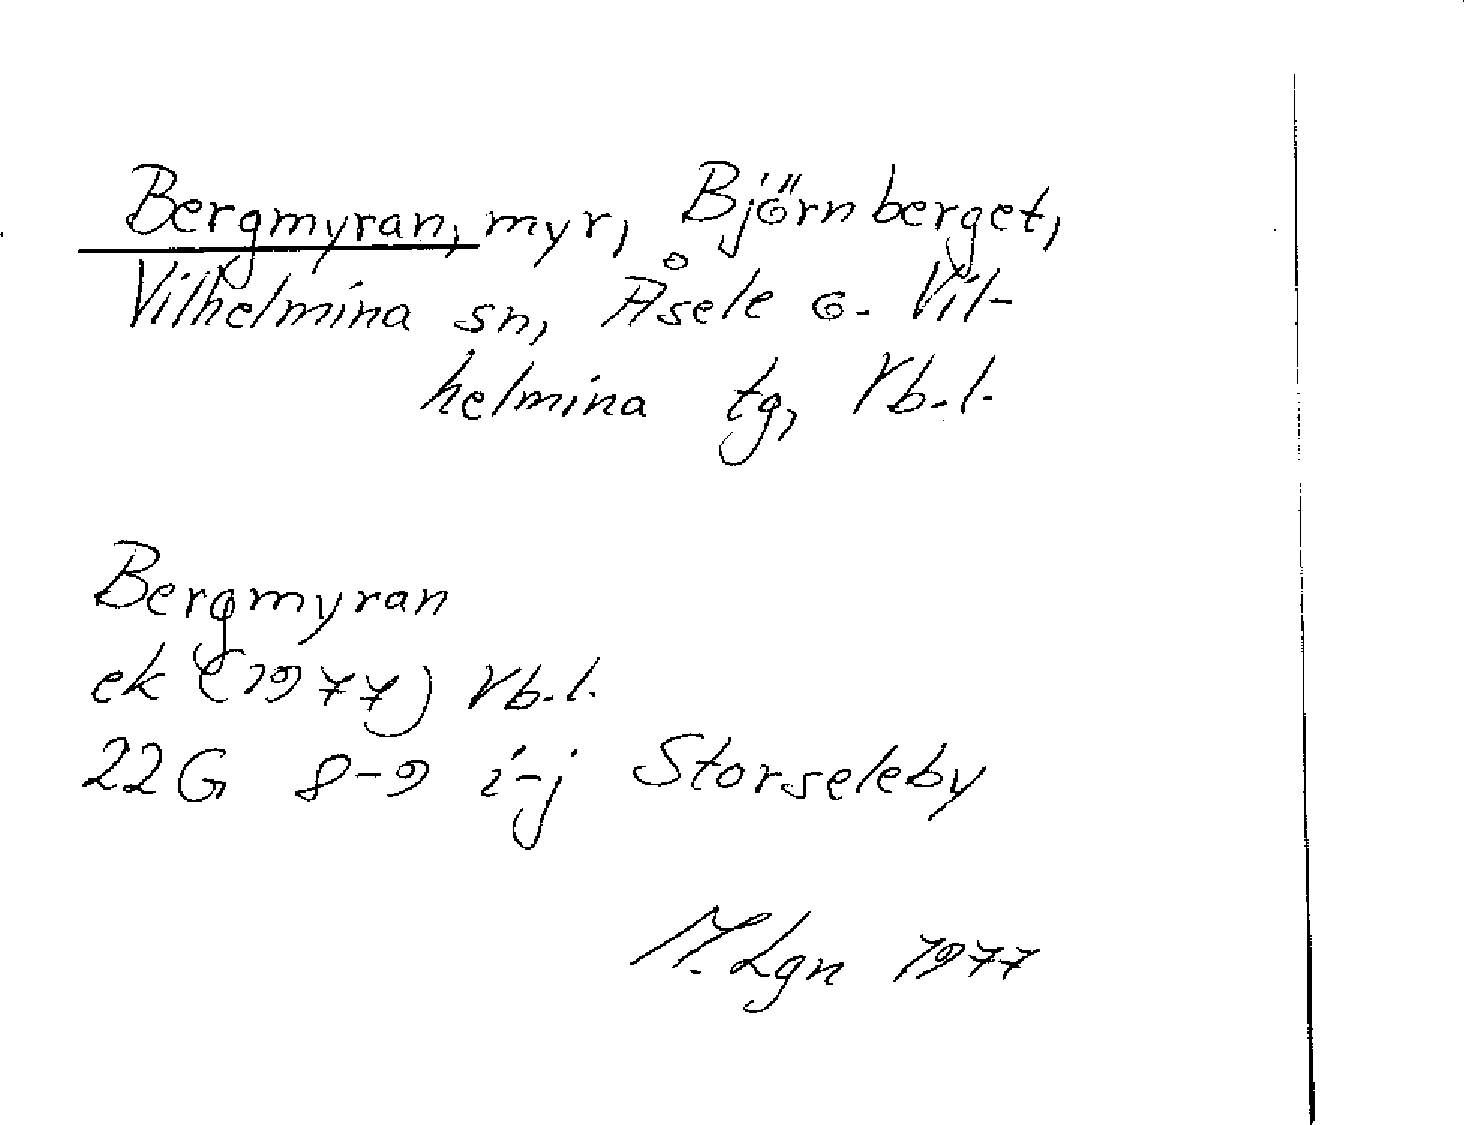 Bergmyran, myr, Björnberget,
Vilhelmina sn, Åsele o. Vil-
helmina tg, Vb.l.
Bergmyran
ek (1977) Vb.l.
22G 8-9 i-j Storseleby
M. Lgn 1977